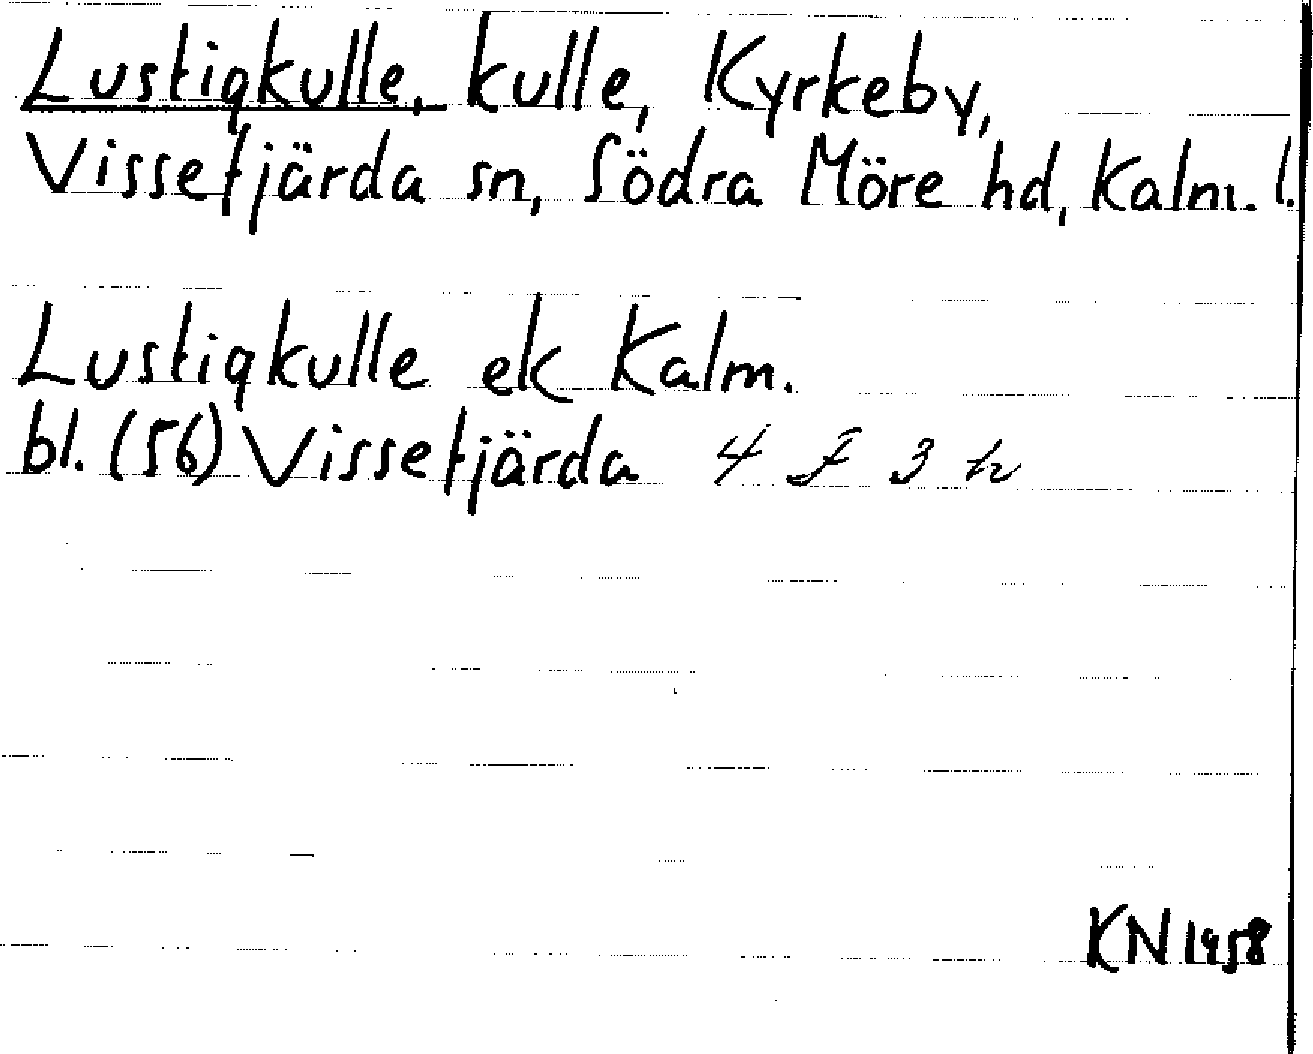 Lustigkulle, kulle, Kyrkeby,
Vissefjärda sn, Södra Möre hd, Kalm. l.
Lustigkulle ek Kalm.
bl. (56) Vissefjärda 4 f 3 h
KN 1958